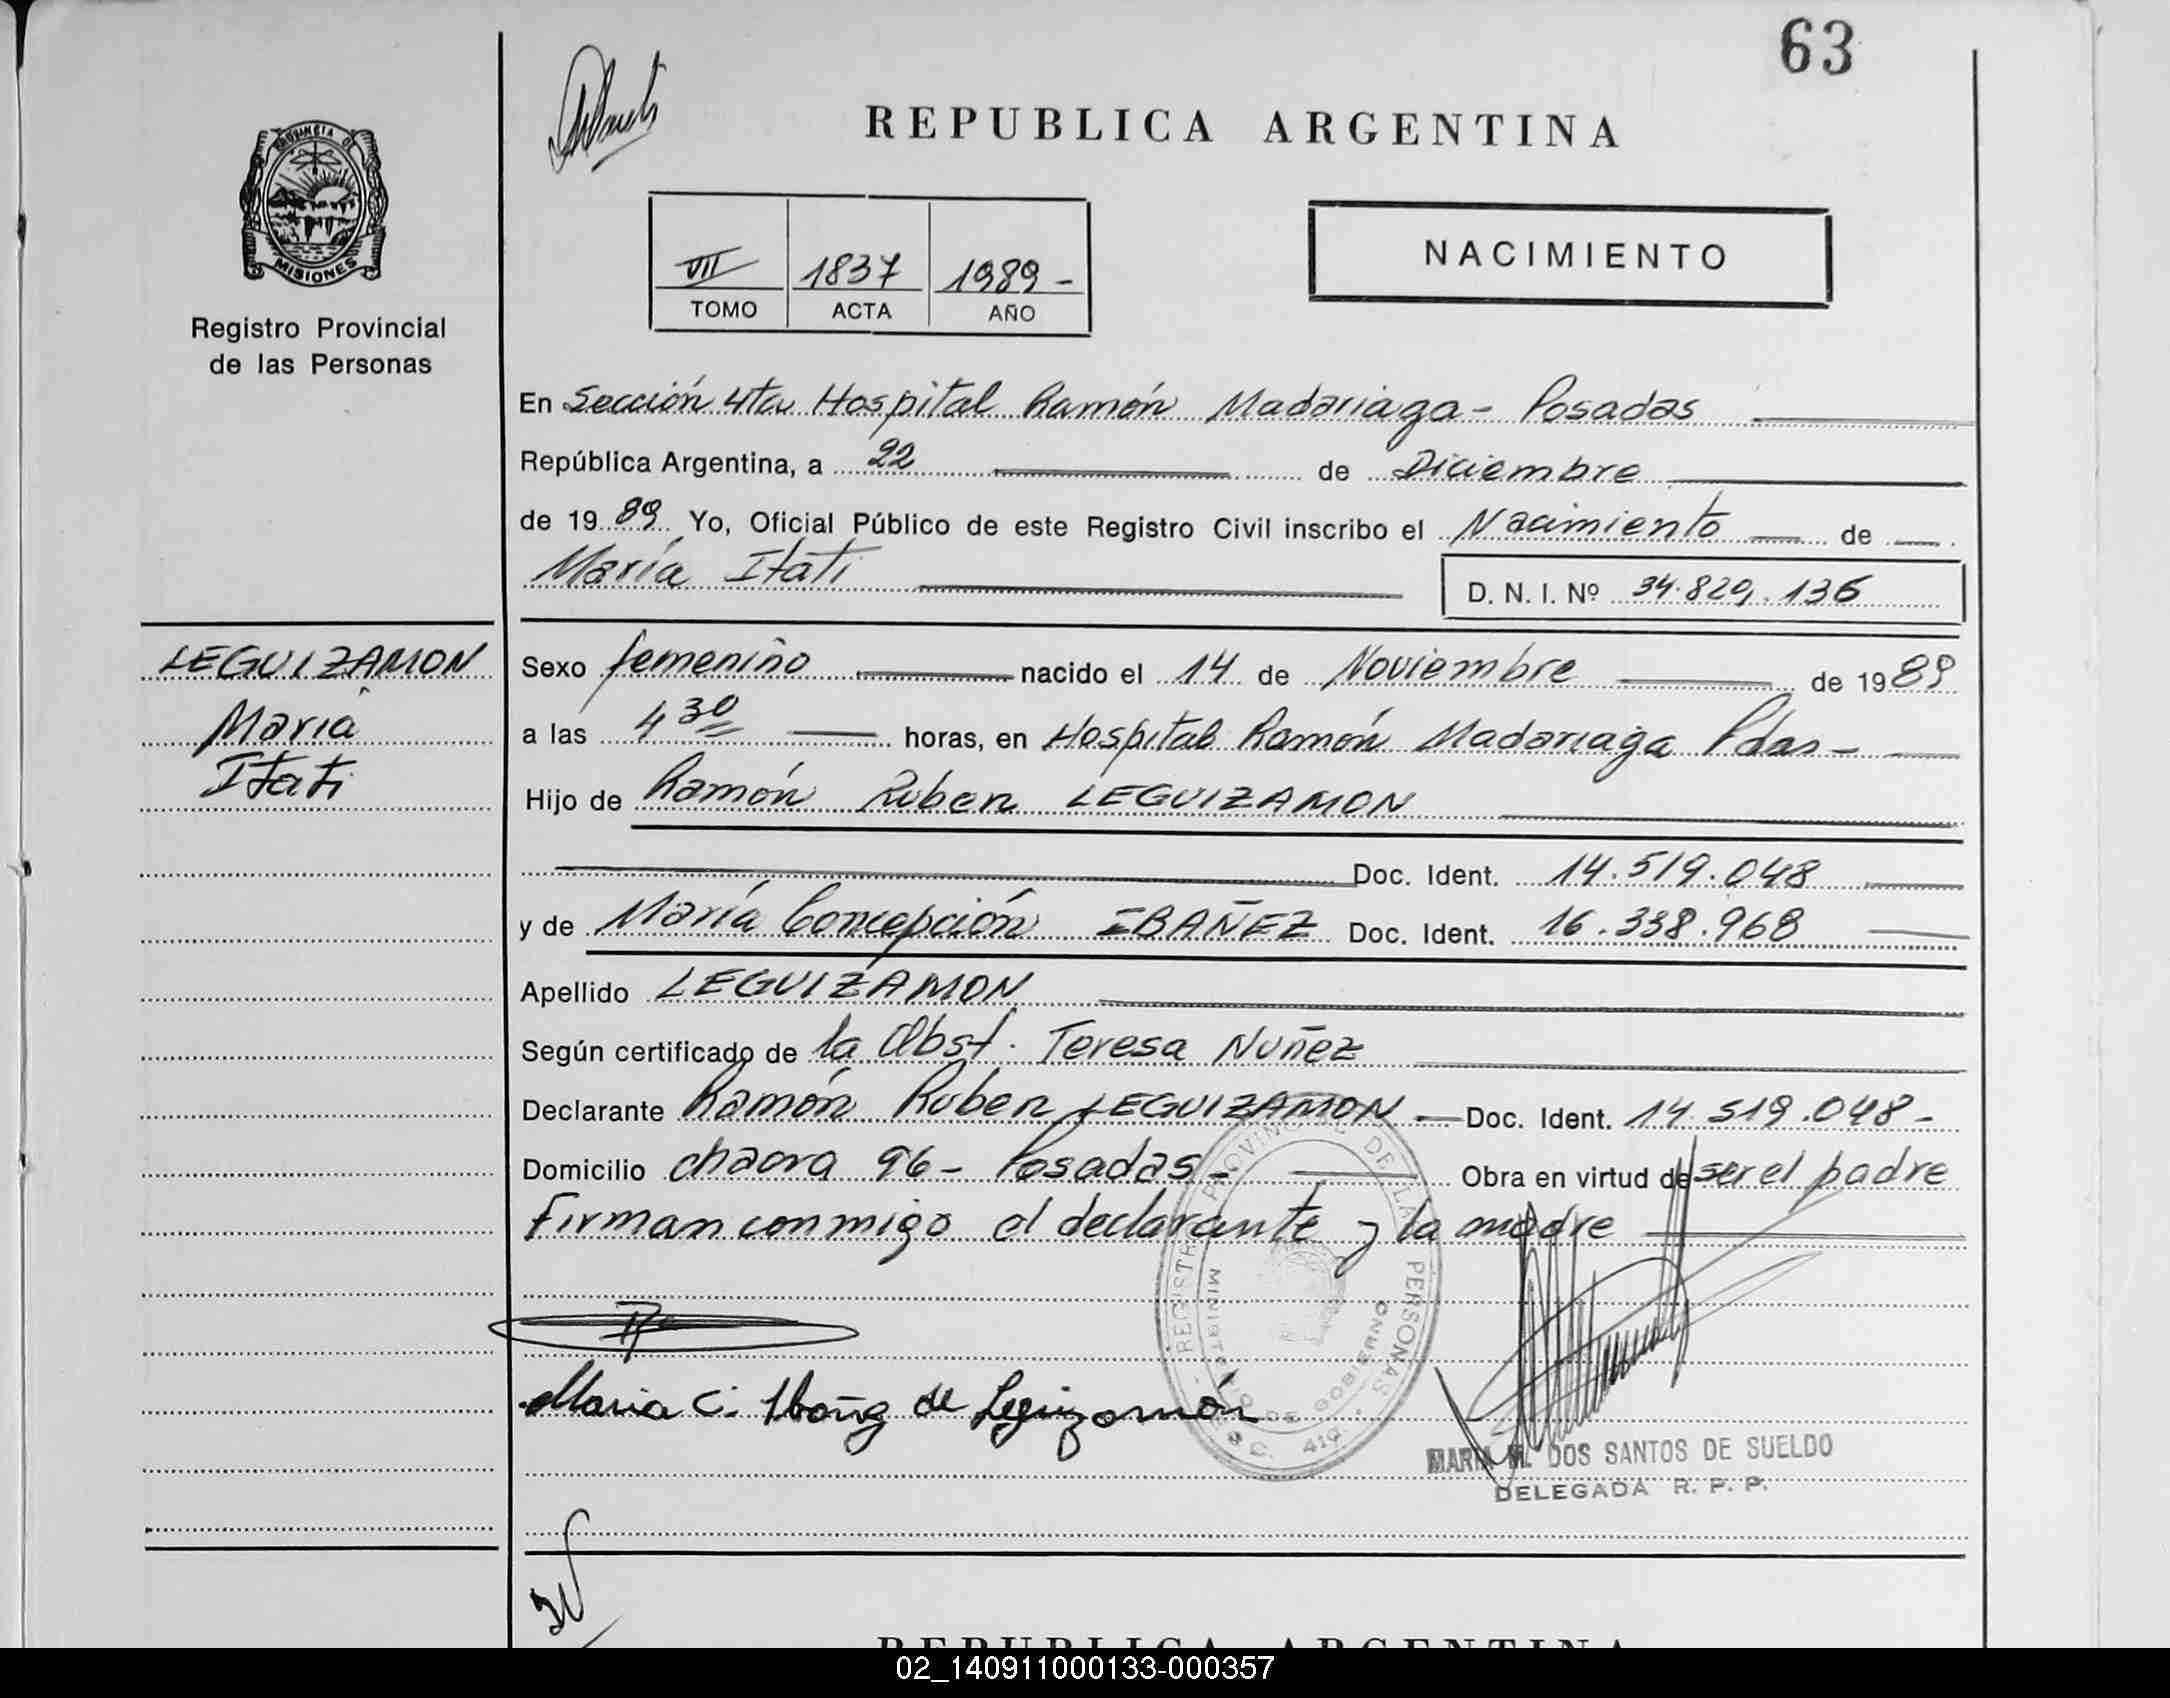 63
REPUBLICA ARGENTINA
PROVINCIA DE
MISIONES
Registro Provincial
de las Personas
VII 1837 1989 -
TOMO ACTA AÑO
NACIMIENTO
En Sección 4ta Hospital Ramón Madariaga - Posadas
República Argentina, a 22 de Diciembre
de 1989 Yo, Oficial Público de este Registro Civil inscribo el Nacimiento de
María Itati
D. N. I. Nº 34.829.136
LEGUIZAMON
María
Itati
Sexo femenino nacido el 14 de Noviembre de 1989
a las 4 30 horas, en Hospital Ramón Madariaga Pdas -
Hijo de Ramón Ruben LEGUIZAMON
Doc. Ident. 14.519.048
y de María Concepción IBAÑEZ Doc. Ident. 16.338.968
Apellido LEGUIZAMON
Según certificado de la Obst. Teresa Nuñez
Declarante Ramón Ruben LEGUIZAMON - Doc. Ident. 14.519.048 -
Domicilio chacra 96 - Posadas - Obra en virtud de ser el padre
Firman conmigo el declarante y la madre
REGISTRO PROVINCIAL DE LAS PERSONAS
MINISTERIO DE GOBIERNO
Maria C. Ibañez de Leguizamón
MARIA M. DOS SANTOS DE SUELDO
DELEGADA R. P. P.
REPUBLICA ARGENTINA
02_140911000133-000357